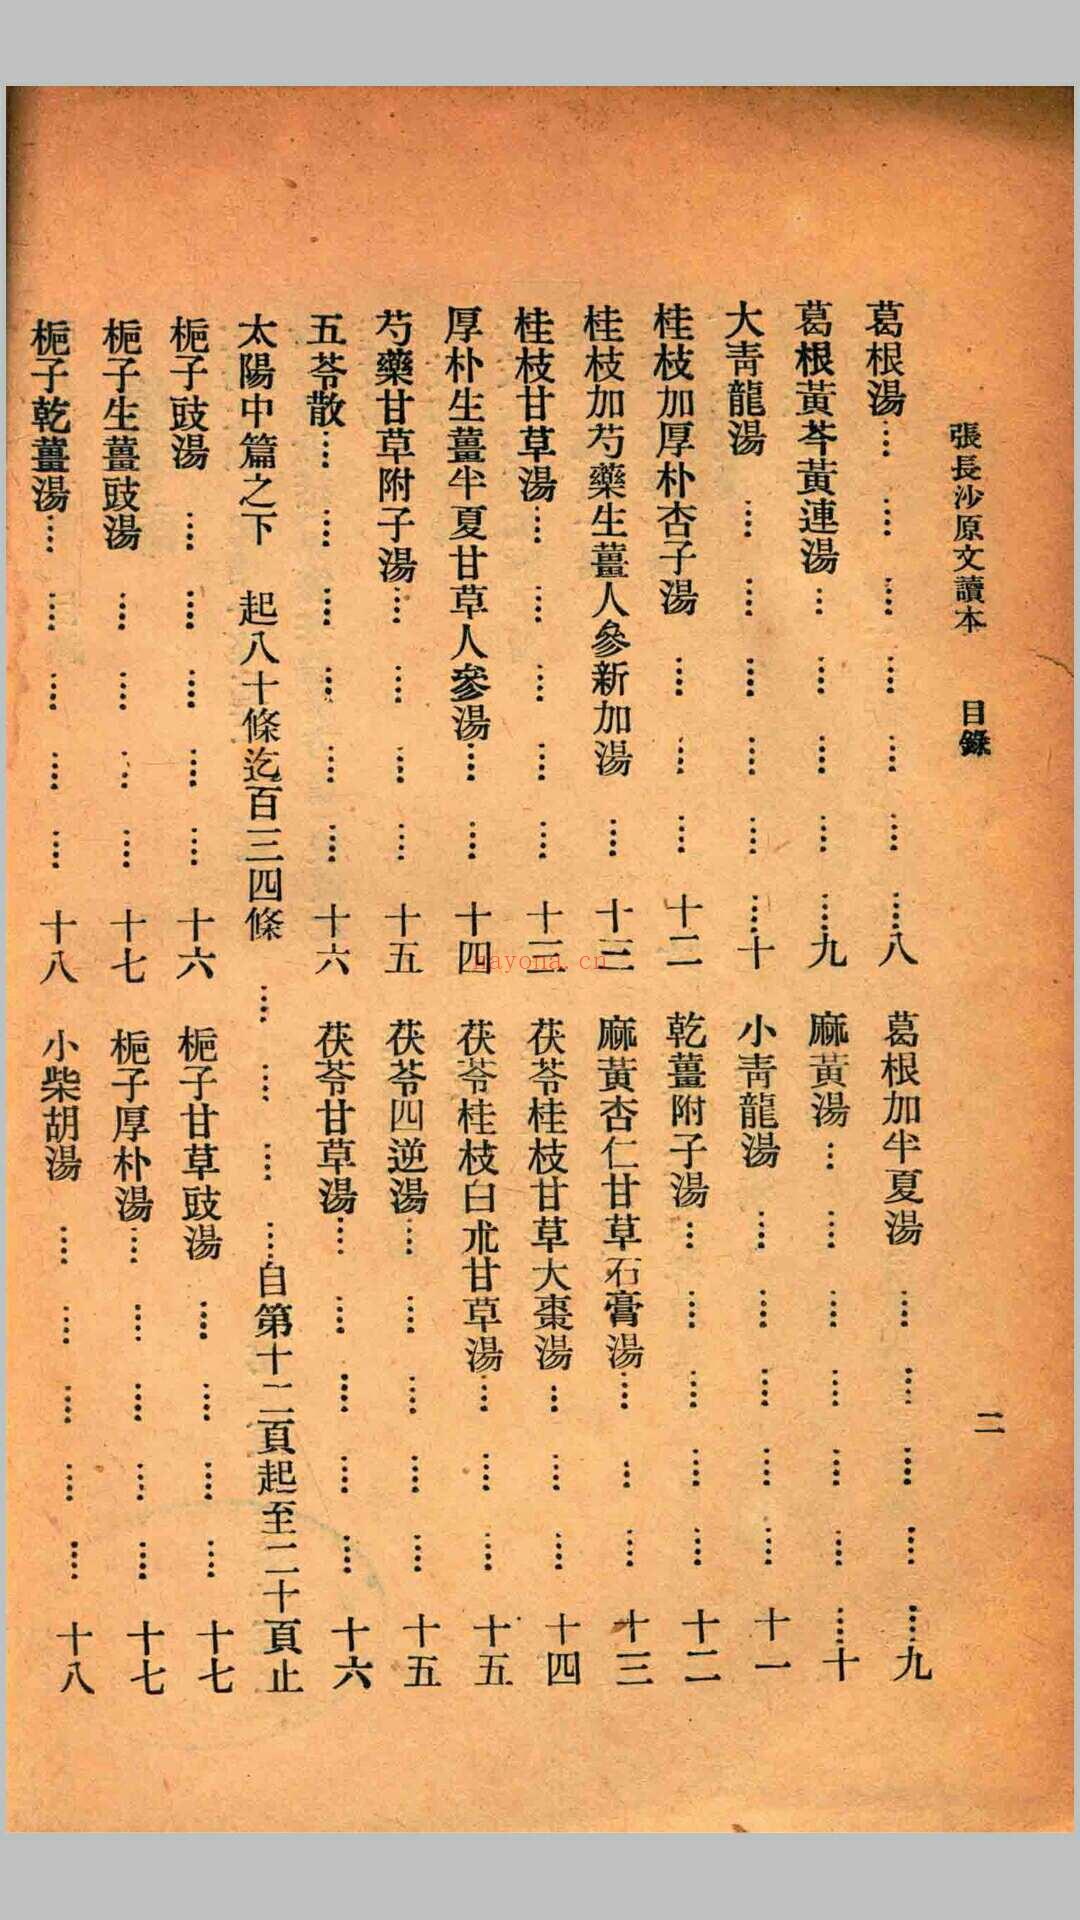 張長沙原文讀本 目錄 二
葛根湯…………………八 葛根加半夏湯…………………九
葛根黃芩黃連湯…………………九 麻黃湯…………………十
大靑龍湯…………………十 小靑龍湯…………………十一
桂枝加厚朴杏子湯…………………十二 乾薑附子湯…………………十二
桂枝加芍藥生薑人參新加湯…………………十三 麻黃杏仁甘草石膏湯…………………十三
桂枝甘草湯…………………十三 茯苓桂枝甘草大棗湯…………………十四
厚朴生薑半夏甘草人參湯…………………十四 茯苓桂枝白朮甘草湯…………………十五
芍藥甘草附子湯…………………十五 茯苓四逆湯…………………十五
五苓散…………………十六 茯苓甘草湯…………………十六
太陽中篇之下 起八十條迄百三四條…………………自第十二頁起至二十頁止
梔子豉湯…………………十六 梔子甘草豉湯…………………十七
梔子生薑豉湯…………………十七 梔子厚朴湯…………………十七
梔子乾薑湯…………………十八 小柴胡湯…………………十八
nayona.cn